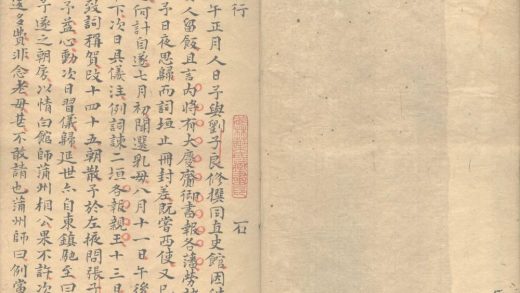 行 石
午正月人日予與劉子良修撰同直史館因
人留飯且言內將有大慶齋御書報各藩勞
予日夜思歸而詞垣止冊封差既嘗西使又已
何計自遂七月初開選乳母八月十一日午後
下次日具儀注例詞諫二垣各報親王十三日
致詞稱賀改十四十五朝散予於左掖問張子
予益心動次日習儀歸延世亦自東鎮馳至曰
予遂之朝房以情白館師蒲州相公果不許次
遠多費非念老母甚不敢請也蒲州師曰例當